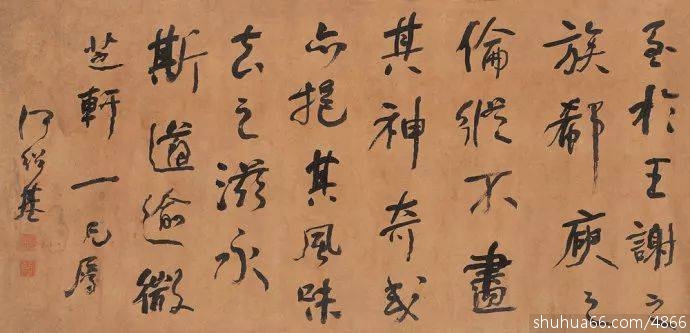 至於王謝之
族郗庾之
倫縱不盡
其神奇咸
亦挹其風味
去之滋永
斯道逾微
芝軒一兄屬
何紹基
shuhua66.com/4866